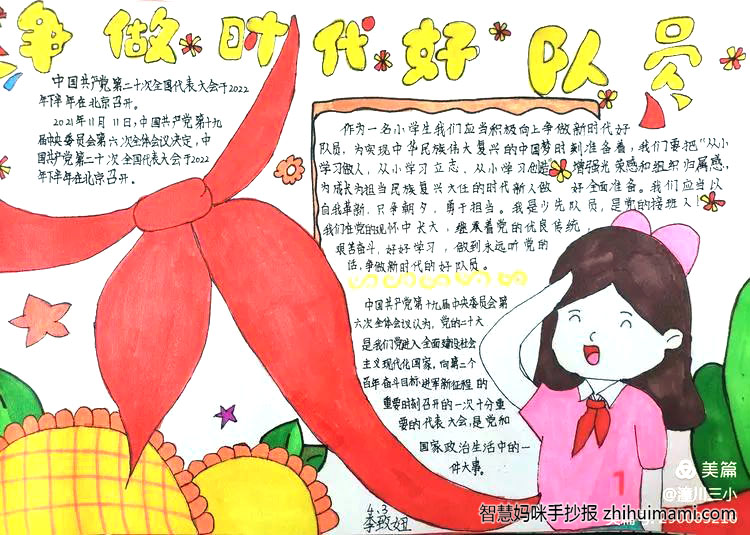 争做时代好队员
中国共产党第二十次全国代表大会于2022
年下半年在北京召开。
2021年11月11日,中国共产党第十九
届中央委员会第六次全体会议决定,中
国共产党第二十次全国代表大会于2022
年下半年在北京召开。
作为一名小学生我们应当积极向上争做新时代好
队员,为实现中华民族伟大复兴的中国梦时刻准备着,我们要把"从小
学习做人,从小学习立志,从小学习创造 增强光荣感和组织归属感,
为成长为担当民族复兴大任的时代新人做好全面准备。我们应当以
自我革新,只争朝夕,勇于担当。我是少先队员,是党的接班人!
我们在党的观怀中长大,继承着党的优良传统,
艰苦奋斗,好好学习,做到永远听党的
话,争做新时代的好队员。
中国共产党第十九届中央委员会第
六次全体会议认为,党的二十大
是我们党进入全面建设社会
主义现代化国家,向第二个
百年奋斗目标进军新征程的
重要时刻召开的一次十分重
要的代表大会,是党和
国家政治生活中的一
件大事。
4.3
李
1
美篇
@潼川三小
智慧妈咪手抄报 zhihuimami.com